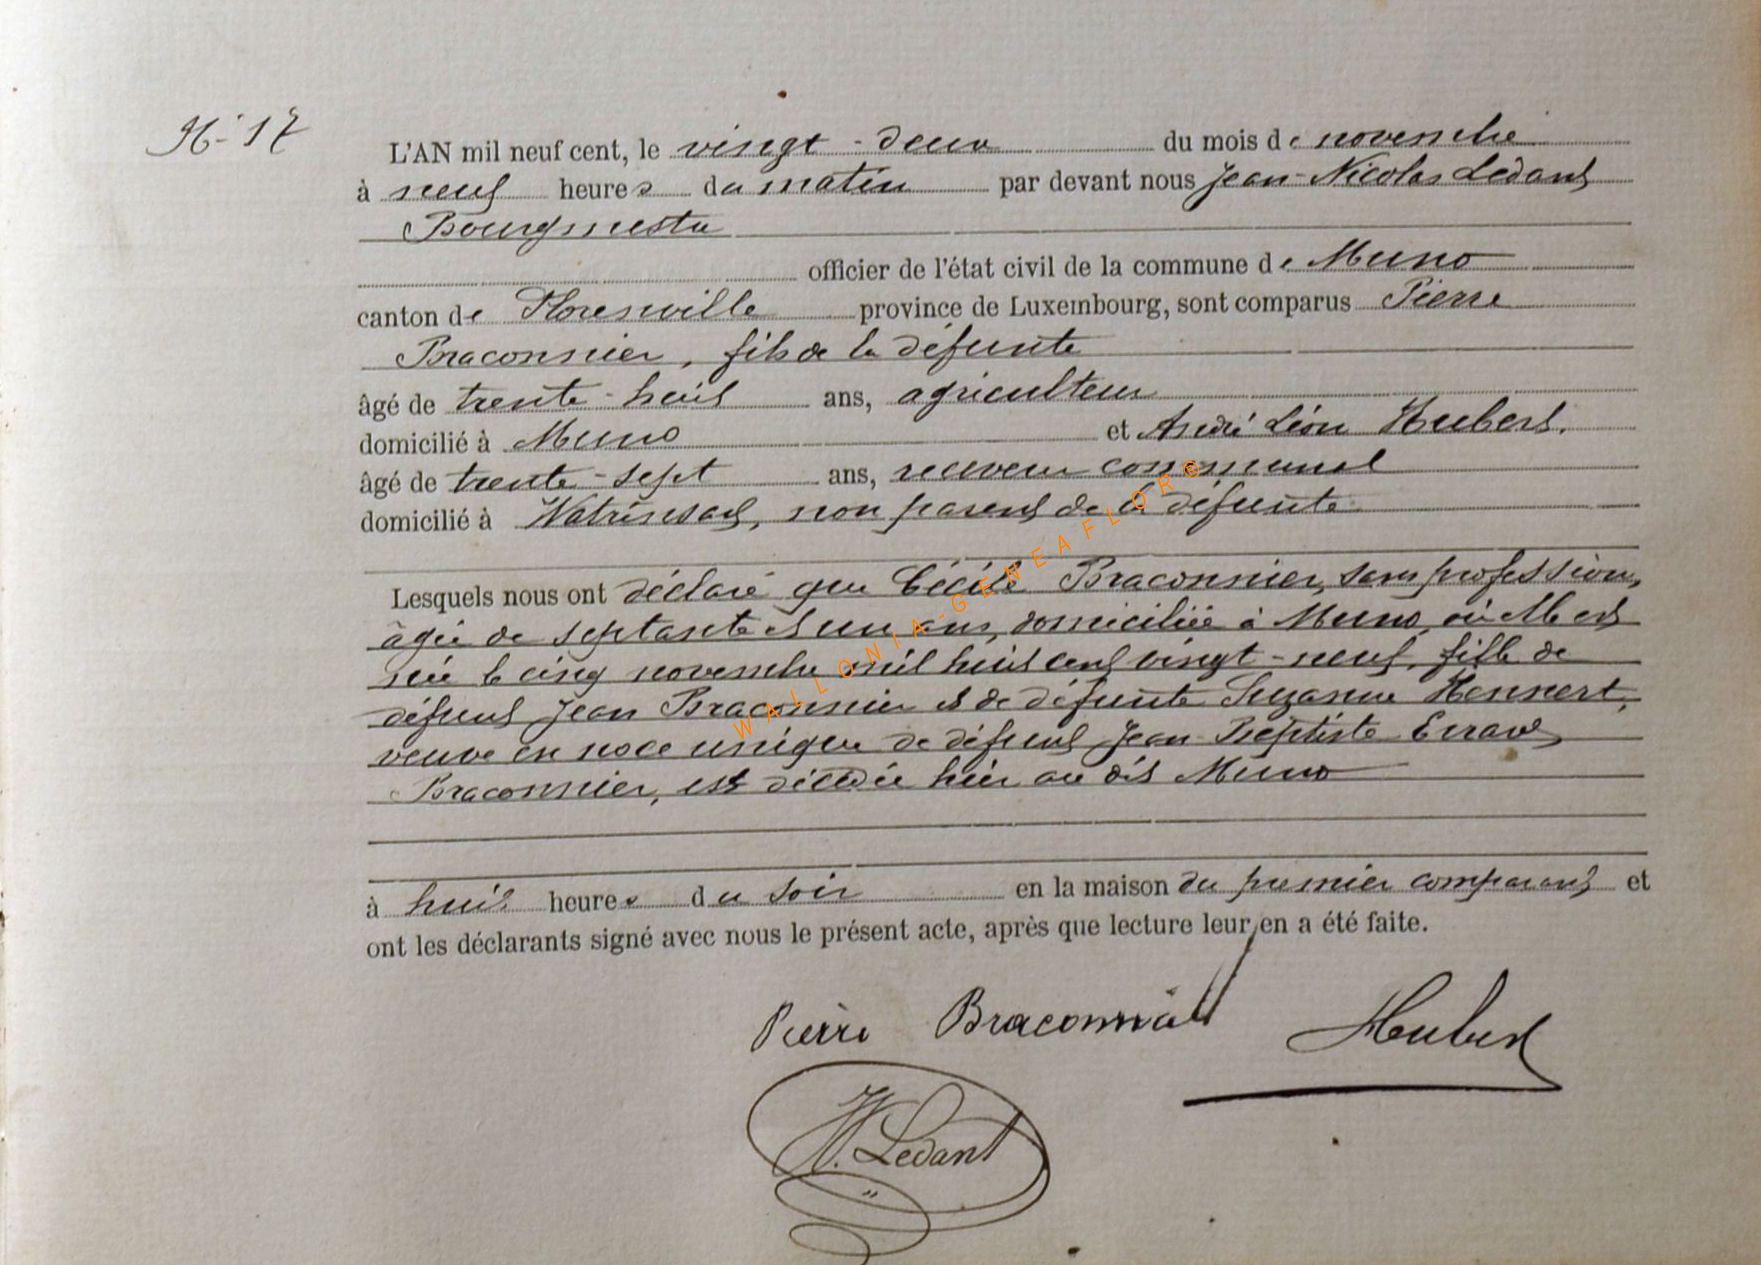 N° 17
L'AN mil neuf cent, le vingt-deux du mois de novembre
à neuf heures du matin par devant nous Jean-Nicolas Ledant
Bourgmestre
officier de l'état civil de la commune de Muno
canton de Florenville province de Luxembourg, sont comparus Pierre
Braconnier, fils de la défunte
âgé de trente-huit ans, agriculteur
domicilié à Muno et André Léon Hubert.
âgé de trente-sept ans, receveur communal
domicilié à Watrinsart, non parent de la défunte
Lesquels nous ont déclaré que Cécile Braconnier, sans profession,
âgée de septante et un ans, domiciliée à Muno, où elle est
née le cinq novembre mil huit cent vingt-neuf, fille de
défunt Jean Braconnier et de défunte Suzanne Hennert,
veuve en noce unique de défunt Jean-Baptiste Evrard
Braconnier, est décédée hier au dit Muno
à huit heures du soir en la maison du premier comparant et
ont les déclarants signé avec nous le présent acte, après que lecture leur en a été faite.
Pierre Braconnier Hubert
Ledant
WALLONIA-GENEAFLOR®